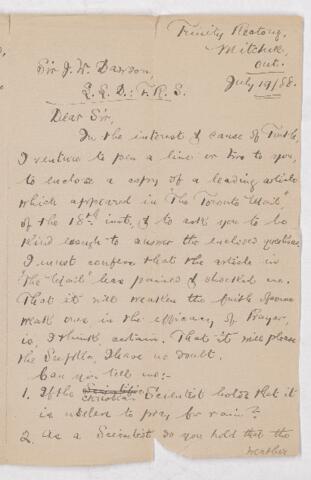 Trinity Rectory,
Mitchell,
Ont.
July 19/88.
Sir J. W. Dawson,
L.L.D: F.R.S.
Dear Sir,
In the interest & cause of Truth,
I venture to pen a line or two to you,
to enclose a copy of a leading article
which appeared in "The Toronto Mail",
of the 18th inst, & to ask you to be
kind enough to answer the enclosed questions.
I must confess that the article in
"the Mail" has pained & shocked me.
That it will weaken the faith of some
weak ones in the efficacy of Prayer,
is, I think, certain. That it will please
the Sceptic, I have no doubt.
Can you tell me:-
1. If the Christian Scientist holds that it
is useless to pray for rain?
2. As a Scientist do you hold that the
weather